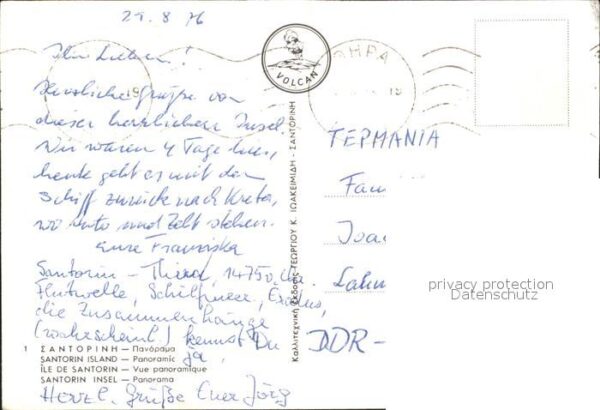 29.8.76
Ihr Lieben!
Herzliche Grüße von
dieser herrlichen Insel.
Wir waren 4 Tage hier,
heute geht es mit dem
Schiff zurück nach Kreta,
wo Auto und Zelt stehen.
Eure Franziska
Santorin – Thira, 1475 v. Chr.
Flutwelle, Schilfmeer, Exodus,
die Zusammenhänge
(wahrscheinl.) kennst Du
ja.
Herzl. Grüße Euer Jörg
1 ΣΑΝΤΟΡΙΝΗ — Πανόραμα
SANTORIN ISLAND — Panoramic
ÎLE DE SANTORIN — Vue panoramique
SANTORIN INSEL — Panorama
VOLCAN
ΘΗΡΑ
19
19
Καλλιτεχνική Ἔκδοσις ΓΕΩΡΓΙΟΥ Κ. ΙΩΑΚΕΙΜΙΔΗ - ΣΑΝΤΟΡΙΝΗ
ΓΕΡΜΑΝΙΑ
Fam
DDR –
privacy protection
Datenschutz